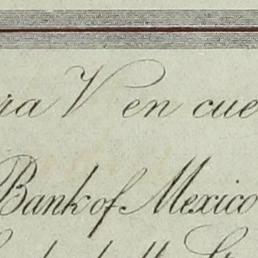 ra V en cue
Bank of Mexico